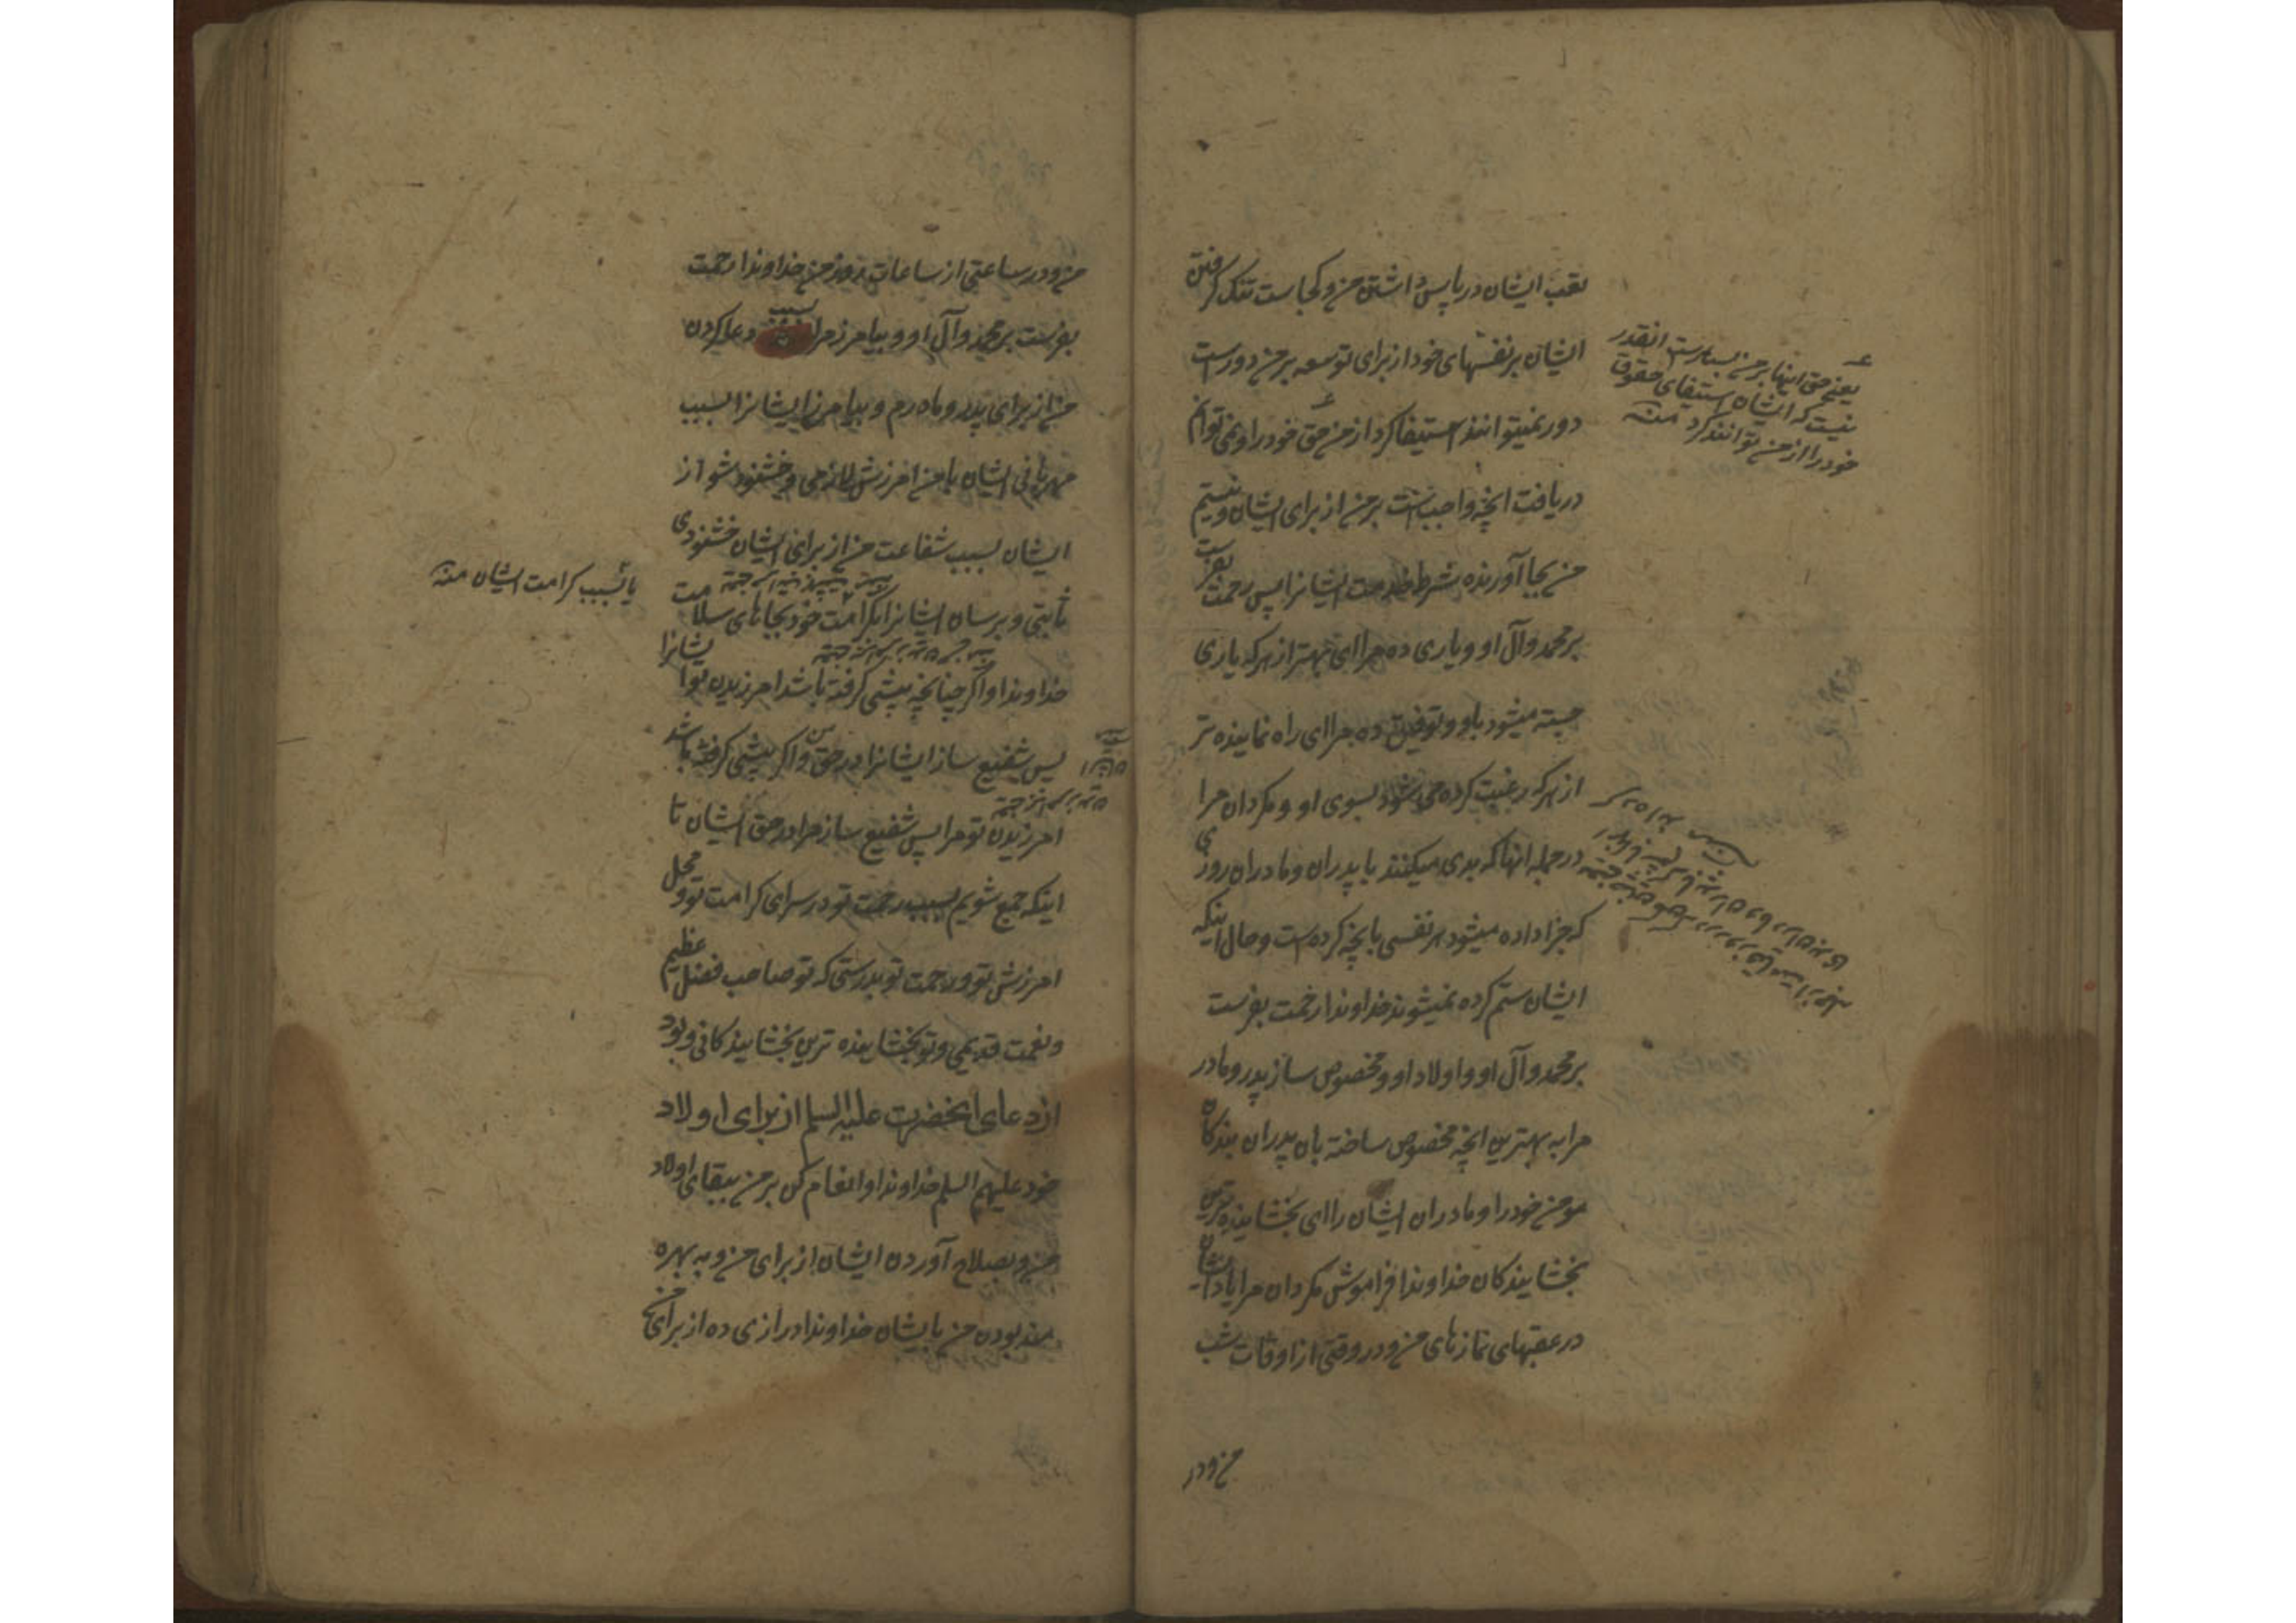 تعب ایشان در پاس داشتن من و کجاست تنک کرفتن
ایشان بر نفسهای خود از برای توسعه بر من دورست
دور نمیتوانند استیفا کرد از من حق خود را و نمی توانم
دریافت انچه واجبست بر من از برای ایشان و نیستم
من بجا آورنده شرط خدمت ایشانرا پس رحمت بفرست
بر محمد و آل او و یاری ده مرا ای بهتر از هر که یاری
جسته میشود باو و توفیق ده مرا ای راه نماینده تر
از هر که رغبت کرده می شود بسوی او و مکردان مرا
در جمله انها که بدی میکنند با پدران و مادران روزی
که جزا داده میشود هر نفسی بانچه کرده است و حال اینکه
ایشان ستم کرده نمیشوند خداوندا رحمت بفرست
بر محمد و آل او و اولاد او و مخصوص ساز پدر و مادر
مرا به بهترین انچه مخصوص ساخته بان پدران بندکان
مومن خود را و مادران ایشان را ای بخشاینده ترین
بخشایندکان خداوندا فراموش مکردان مرا یاد ایشان
در عقبهای نمازهای من و در وقتی از اوقات شب
من و در
یعنی حق اینها بر من بسیارست انقدر
نیست که ایشان استیفای حقوق
خود را از من توانند کرد منه
من و در ساعتی از ساعات روز من خداوندا رحمت
بفرست بر محمد و آل او و بیامرز مرا بسبب دعا کردن
من از برای پدر و مادرم و بیامرز ایشانرا بسبب
مهربانی ایشان با من امرزش لازمی و خشنود شو از
ایشان بسبب شفاعت من از برای ایشان خشنودی
ثابتی و برسان ایشانرا بکرامت خود بجاهای سلامت
خداوندا و اکر چنانچه پیشی کرفته باشد امرزیدن تو ایشانرا
پس شفیع ساز ایشانرا در حق من و اکر پیشی کرفته باشد
امرزیدن تو مرا پس شفیع ساز مرا در حق ایشان تا
اینکه جمع شویم بسبب رحمت تو در سرای کرامت تو و محل
امرزش تو و رحمت تو بدرستی که تو صاحب فضل عظیم
و نعمت قدیمی و تو بخشاینده ترین بخشایندکانی و بود
از دعای انحضرت علیه السلم از برای اولاد
خود علیهم السلم خداوندا و انعام کن بر من ببقای اولاد
من و بصلاح آوردن ایشان از برای من و به بهره
مند بودن من بایشان خداوندا درازی ده از برای من
یا بسبب کرامت ایشان منه